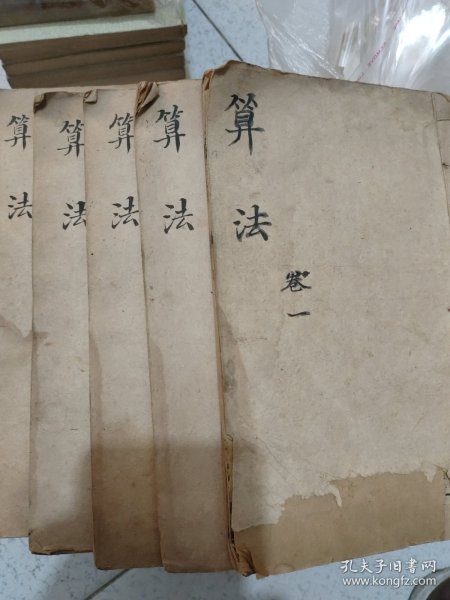 算法
卷一
算法
算法
算法
算法
孔夫子旧书网
www.kongfz.com